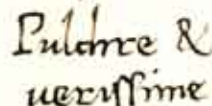 Pulchre &
uerissime